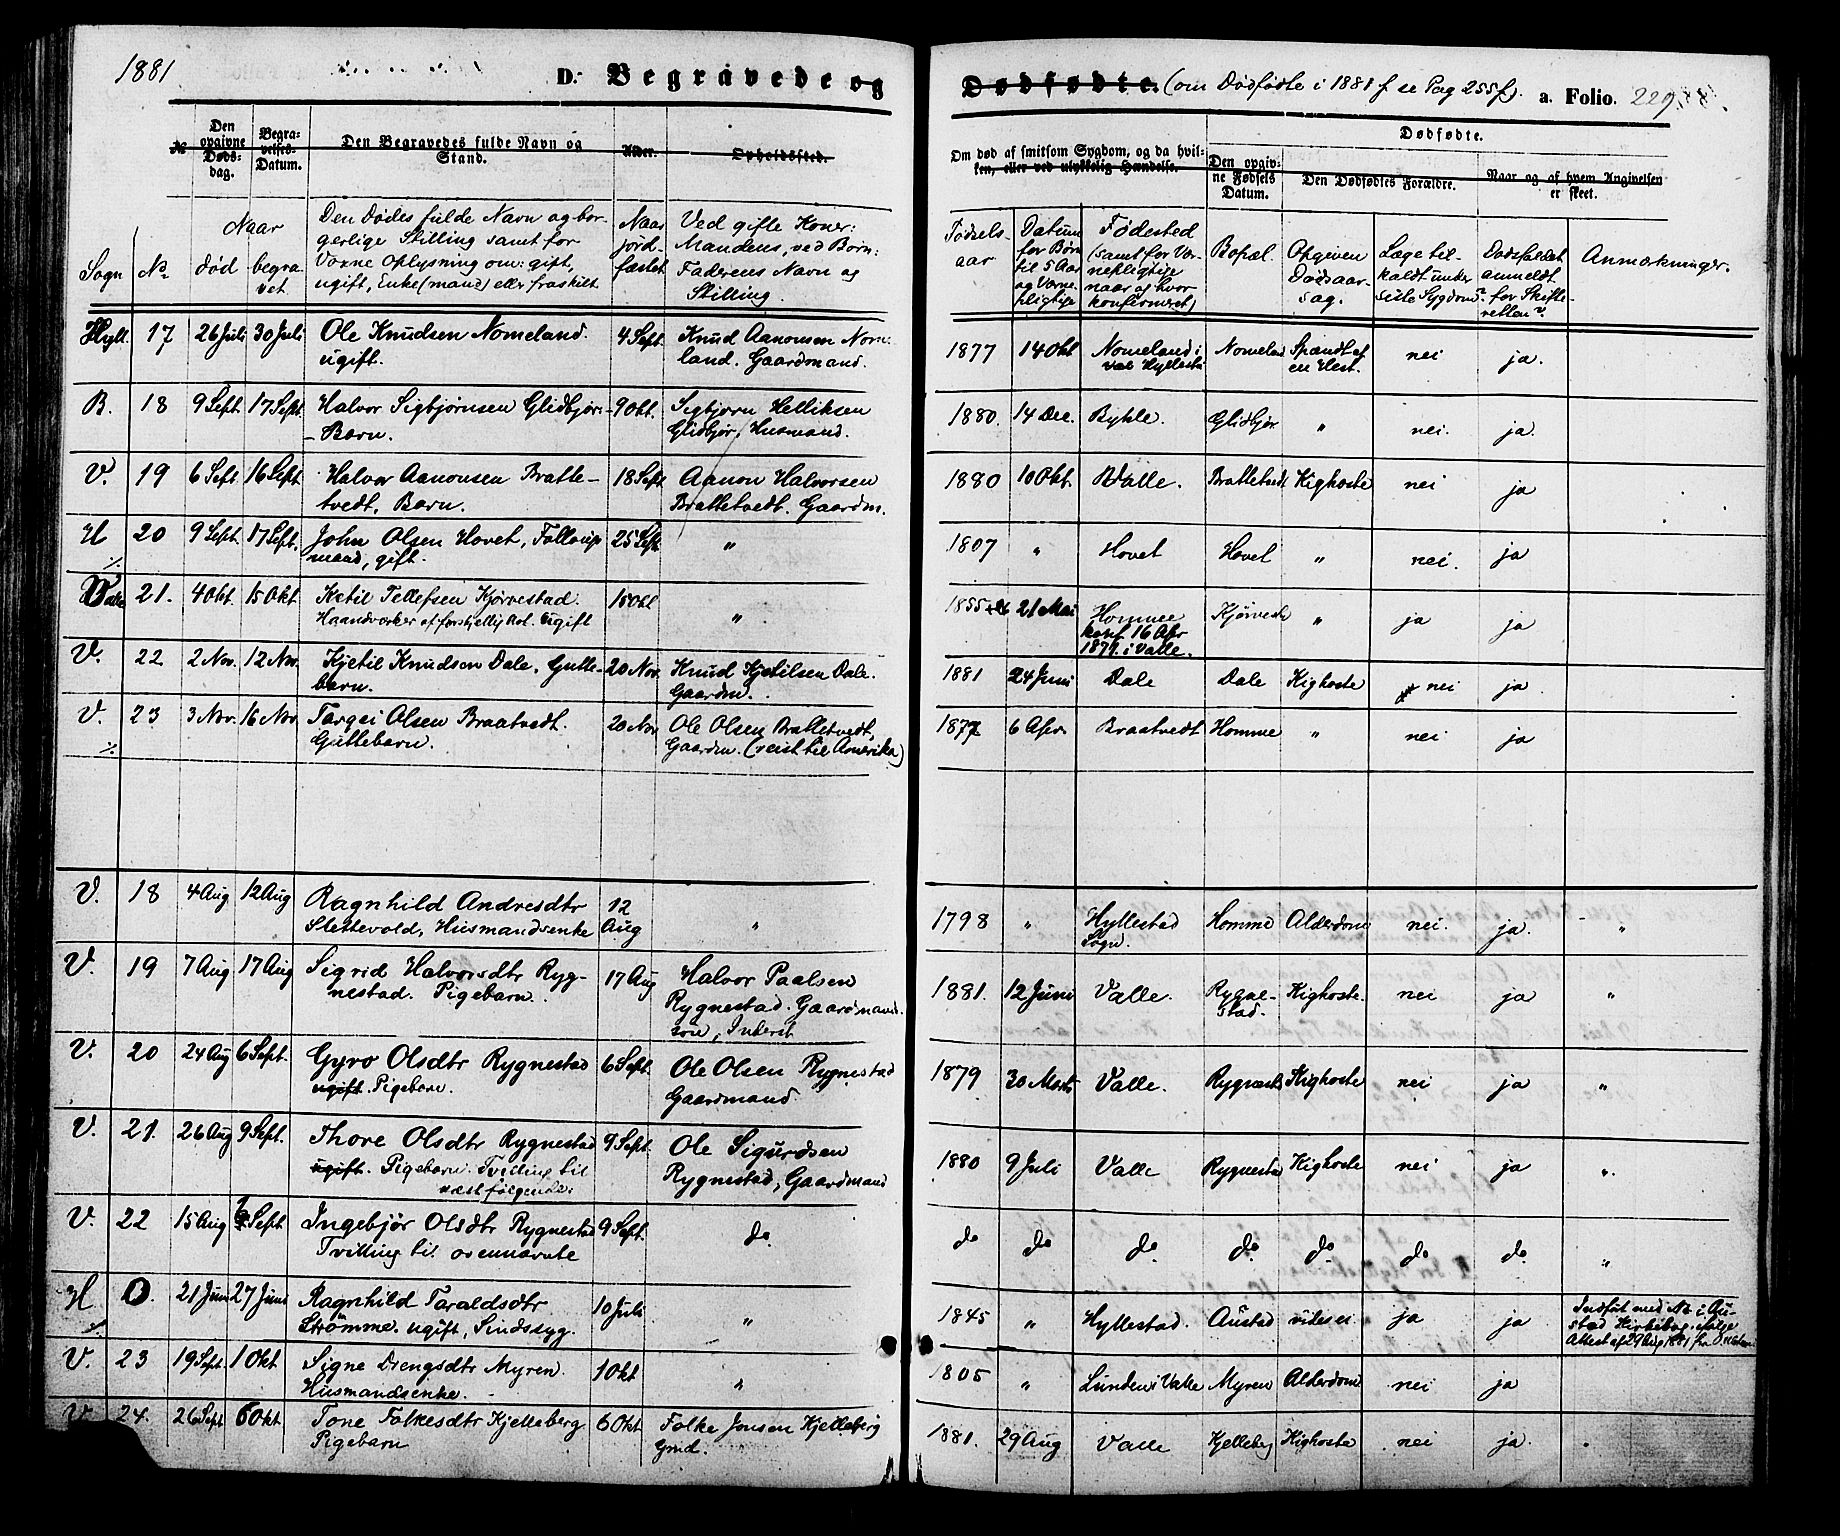 1881
D. Begravede og Dødfødte. (om Dødfødte i 1881 se Pag 255). a. Folio. 229.
№ | Den opgivne Dødsdag. | Begravelses-Datum. | Den Begravedes fulde Navn og Stand. | Alder. | Opholdssted. | Om død af smitsom Sygdom, og da hvilken, eller ved ulykkelig Hændelse. | Dødfødte. | Den opgivne Fødsels Datum. | Den Dødfødtes Forældre. | Naar og af hvem Angivelsen er skeet.
Sogn | No | Naar død | begravet | Den Dødes fulde Navn og borgerlige Stilling samt for Voxne Oplysning om: gift, ugift, Enke(mand) eller fraskilt | Naar jordfæstet | Ved gifte Koner: Mandens, ved Børn: Faderens Navn og Stilling. | Fødselsaar | Datum for Børn til 5 Aar og Værnepligtige | Fødested (samt for Værnepligtige naar og hvor konfirmeret) | Bopæl. | Opgiven Dødsaarsag. | Læge tilkaldt under sidste Sygdom? | Dødsfaldet anmeldt for Skifteretten? | Anmærkninger.
Hyll. | 17 | 26 Juli | 30 Juli | Ole Knudsen Nomeland. ugift. | 4 Sept. | Knud Aanonsen Nomland. Gaardmand. | 1877 | 14 Okt | Nomeland i Hyllesta | Nomeland | Spændt af en Hest. | nei | ja.
B. | 18 | 9 Sept. | 17 Sept. | Halvor Sigbjørnsen Glidbjør. - Barn. | 9 Okt. | Sigbjørn Helliksen Glidbjør, Husmand. | 1880. | 14 Dec. | Bykle. | Glidbjør | " | nei. | ja.
V. | 19 | 6 Sept. | 16 Sept. | Halvor Aanonsen Brattetvedt, Barn. | 18 Sept | Aanon Halvorsen Brattetvedt. Gaardm. | 1880 | 10 Okt. | Valle. | Brattetvedt | Kighoste | nei | ja
H ./. | 20 | 9 Sept. | 17 Sept. | John Olsen Hovet, Følloupsmand, gift. | 25 Sept | " | 1807 | " | Hovet | Hovet | " | nei. | ja
Valle | 21. | 4 Okt. | 15 Okt | Ketil Tellefsen Kjørvestad. Haandværker af forskjellig Art. ugift | 15 Okt | " | 1855 | 21 Mai | Homme konf. 16 Apr 1871. i Valle. | Kjørvesta | " | ja | ja
V. | 22 | 2 Nov. | 12 Nov. | Kjetil Knudsen Dale. Guttebarn. | 20 Nov. | Knud Kjetilsen Dale. Gaardm. | 1881 | 24 Juni | Dale | Dale | Kighoste | nei | ja
V. ./. | 23 | 3 Nov. | 16 Nov. | Targei Olsen Braatvedt. Guttebarn. | 20 Nov | Ole Olsen Brattetvedt, Gaardm. (reist til Amerika) | 1877 | 6 Apr. | Braatvedt | Homme | " | nei | ja
V. | 18 | 4 Aug | 12 Aug | Ragnhild Andresdtr Slettevold, Husmandsenke | 12 Aug | " | 1798 | " | Hyllestad Sogn. | Homme | Alderdom | nei. | ja. | "
V. | 19 | 7 Aug | 17 Aug | Sigrid Halvorsdtr Rygnestad. Pigebarn. | 17 Aug | Halvor Paalsen Rygnestad. Gaardmandsøn, Inderst | 1881. | 12 Juni | Valle. | Rygnestad. | Kighoste. | nei | ja | "
V. | 20 | 24 Aug | 6 Sept. | Gyro Olsdtr Rygnestad ugift. Pigebarn. | 6 Sept. | Ole Olsen Rygnestad Gaardmand | 1879 | 30 Marts | Valle. | Rygnesta | Kighoste | nei | ja | "
V. | 21. | 26 Aug | 9 Sept. | Thore Olsdtr Rygnestad ugift. Pigebarn. Tvilling til næstfølgende. | 9 Sept. | Ole Sigurdsen Rygnestad, Gaardmand | 1880 | 9 Juli | Valle | Rygnesta | Kighoste | nei | ja | "
V. | 22 | 15 Aug | 6 Sept. | Ingebjør Olsdtr Rygnestad Tvilling til ovennævnte | 9 Sept. | do | do | do | do | do | do | do | do | "
H ./. | 0. | 21 Juni | 27 Juni | Ragnhild Taraldsdtr Strømme. ugift, Sindssyg. | 10 Juli | " | 1845 | " | Hyllestad. | Austad | vides ei | ja | ja | Indført med No i Austad Kirkebog ifølge Attest af 29 Aug 1881 fra
V. | 23 | 19 Sept. | 1 Okt | Signe Drengsdtr Myren. Husmandsenke. | 1 Okt | " | 1805 | " | Lunden i Valle | Myren | Alderdom | nei | ja
V. | 24. | 26 Sept | 6 Okt. | Tone Folkesdtr Kjelleberg Pigebarn | 6 Okt | Folke Jonsen Kjelleberg Gmd. | 1881. | 29 Aug | Valle | Kjelleberg | Kighoste | nei | ja.